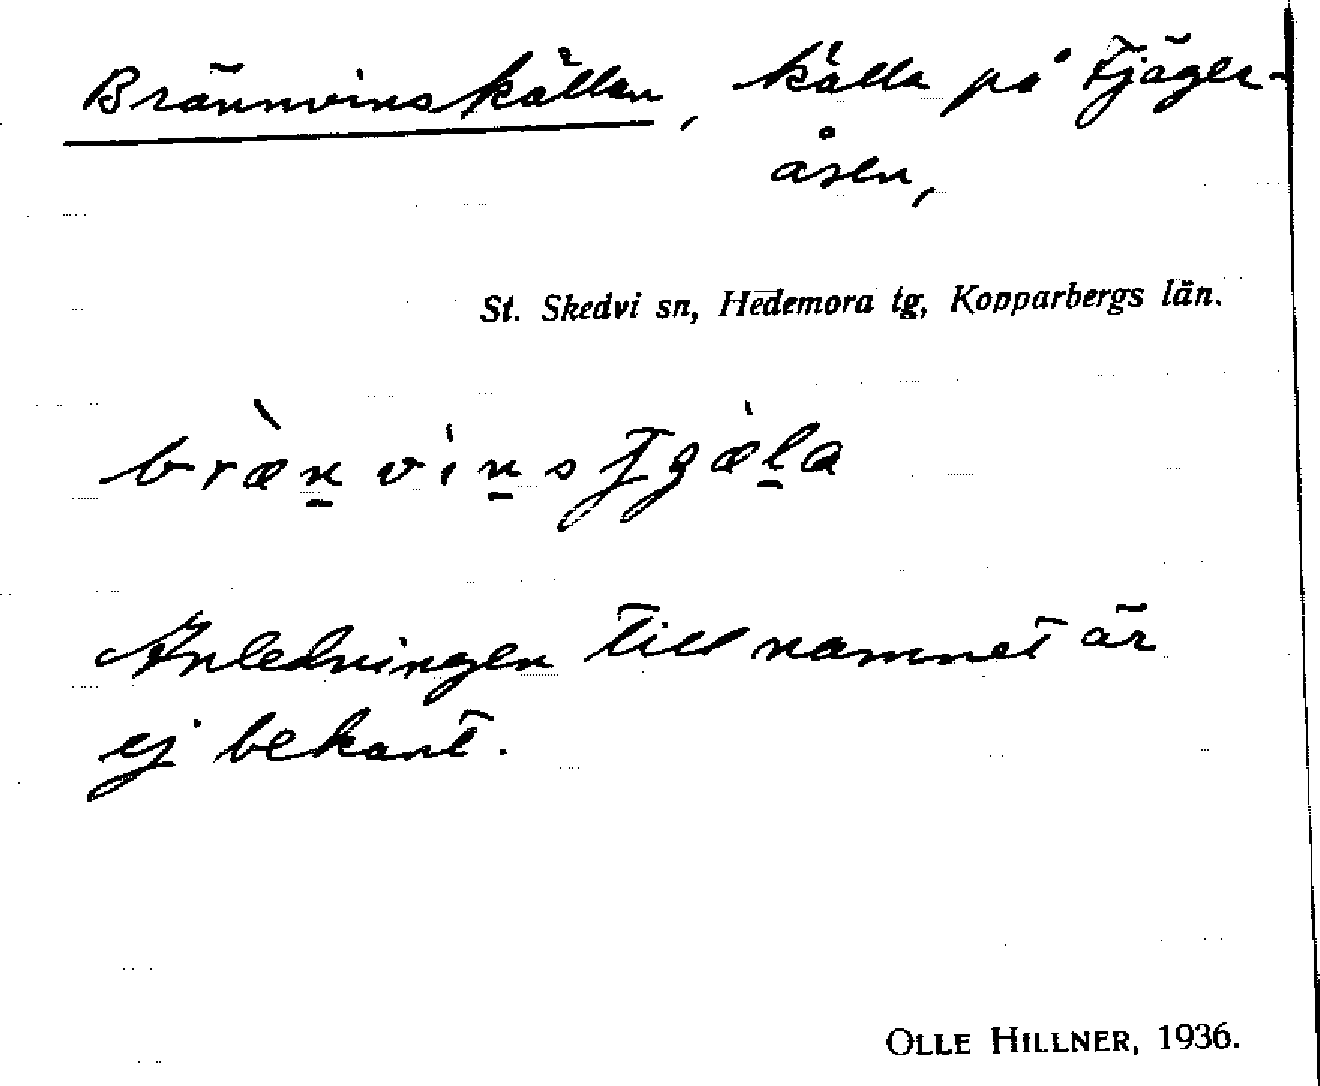 Brännvinskällan, källa på Fjäger-
åsen,
St. Skedvi sn, Hedemora tg, Kopparbergs län.
Anledningen till namnet är
ej bekant.
OLLE HILLNER, 1936.